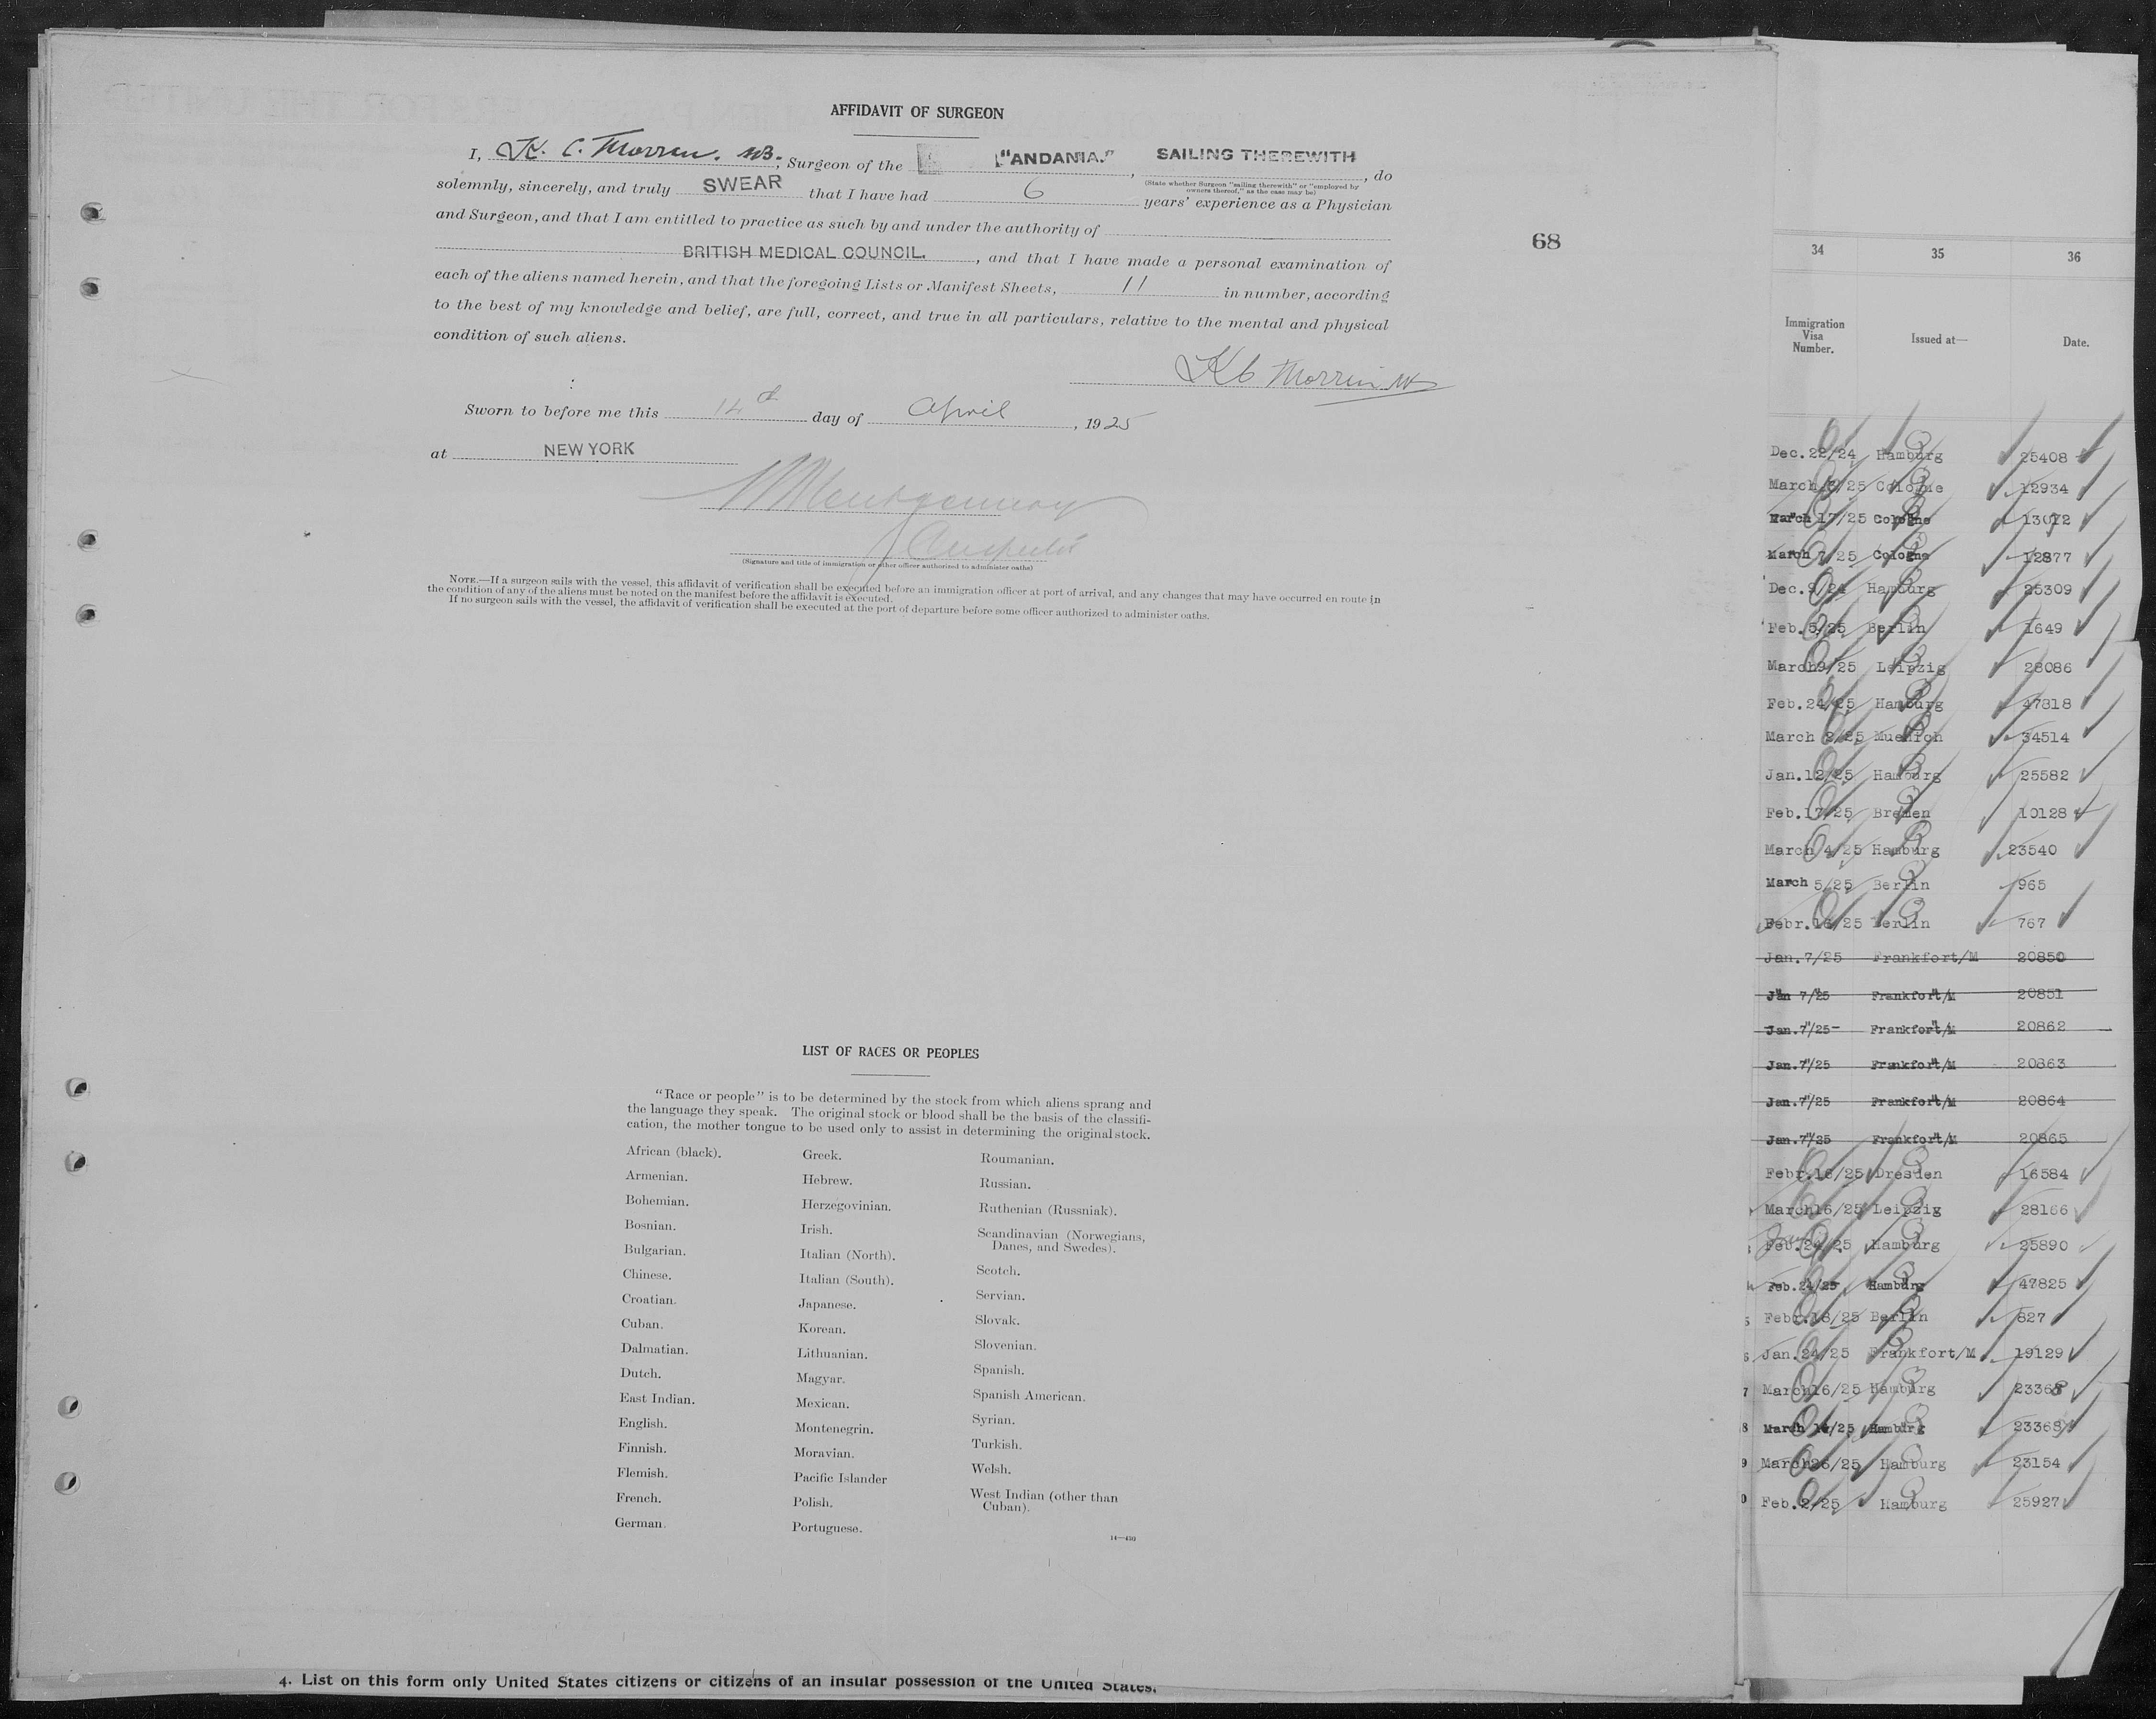 AFFIDAVIT OF SURGEON
I, K. C. Morren. MB., Surgeon of the "ANDANIA.", SAILING THEREWITH, do
(State whether Surgeon "sailing therewith" or "employed by
owners thereof," as the case may be)
solemnly, sincerely, and truly SWEAR that I have had 6 years' experience as a Physician
and Surgeon, and that I am entitled to practice as such by and under the authority of
BRITISH MEDICAL COUNCIL., and that I have made a personal examination of
each of the aliens named herein, and that the foregoing Lists or Manifest Sheets, 11 in number, according
to the best of my knowledge and belief, are full, correct, and true in all particulars, relative to the mental and physical
condition of such aliens.
68
Sworn to before me this 14th day of April, 1925
at NEW YORK
Montgomery
(Signature and title of immigration or other officer authorized to administer oaths)
NOTE.—If a surgeon sails with the vessel, this affidavit of verification shall be executed before an immigration officer at port of arrival, and any changes that may have occurred en route in
the condition of any of the aliens must be noted on the manifest before the affidavit is executed.
If no surgeon sails with the vessel, the affidavit of verification shall be executed at the port of departure before some officer authorized to administer oaths.
LIST OF RACES OR PEOPLES
"Race or people" is to be determined by the stock from which aliens sprang and
the language they speak. The original stock or blood shall be the basis of the classifi-
cation, the mother tongue to be used only to assist in determining the original stock.
African (black).
Armenian.
Bohemian.
Bosnian.
Bulgarian.
Chinese.
Croatian.
Cuban.
Dalmatian.
Dutch.
East Indian.
English.
Finnish.
Flemish.
French.
German.
Greek.
Hebrew.
Herzegovinian.
Irish.
Italian (North).
Italian (South).
Japanese.
Korean.
Lithuanian.
Magyar.
Mexican.
Montenegrin.
Moravian.
Pacific Islander
Polish.
Portuguese.
Roumanian.
Russian.
Ruthenian (Russniak).
Scandinavian (Norwegians,
Danes, and Swedes).
Scotch.
Servian.
Slovak.
Slovenian.
Spanish.
Spanish American.
Syrian.
Turkish.
Welsh.
West Indian (other than
Cuban).
14—430
4. List on this form only United States citizens or citizens of an insular possession of the United States.
34 35 36
Immigration
Visa
Number.
Issued at—
Date.
Dec. 22/24 Hamburg 25408
March /25 Cologne 12934
March 17/25 Cologne 13072
March 7/25 Cologne 12877
Dec. 9/24 Hamburg 25309
Feb. 5/25 Berlin 1649
March9/25 Leipzig 28086
Feb. 24/25 Hamburg 47818
March 2/25 Muenich 34514
Jan. 12/25 Hamburg 25582
Feb. 17/25 Bremen 10128
March 4/25 Hamburg 23540
March 5/25 Berlin 965
Febr. 16/25 Berlin 767
Jan. 7/25 Frankfort/M 20850
Jan 7/25 Frankfort/M 20851
Jan. 7/25 Frankfort/M 20862
Jan. 7/25 Frankfort/M 20863
Jan. 7/25 Frankfort/M 20864
Jan. 7/25 Frankfort/M 20865
Febr. 16/25 Dresden 16584
March16/25 Leipzig 28166
Feb. 24/25 Hamburg 25890
Feb. 24/25 Hamburg 47825
Febr. 18/25 Berlin 827
Jan. 24/25 Frankfort/M 19129
7 March16/25 Hamburg 23368
8 March 14/25 Hamburg 23368
9 March26/25 Hamburg 23154
0 Feb. 2/25 Hamburg 25927